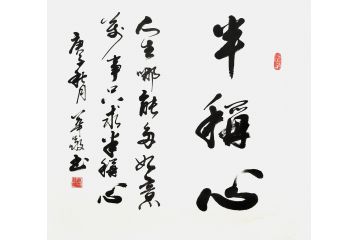 半稱心
人生哪能多如意
萬事只求半稱心
庚子秋月
書